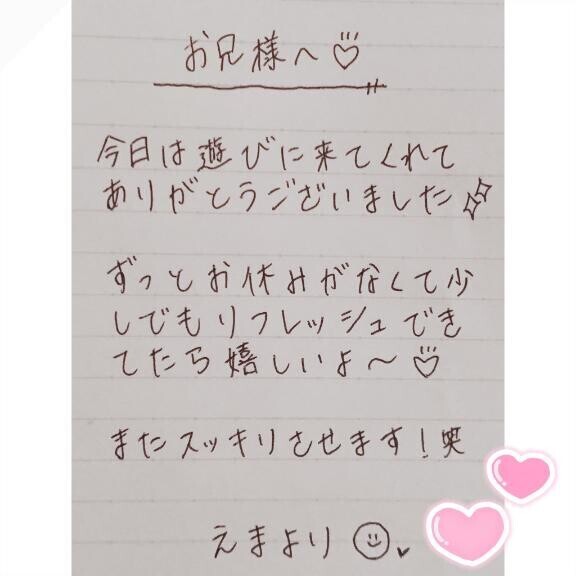 お兄様へ♡
今日は遊びに来てくれて
ありがとうございました✨
ずっとお休みがなくて少
しでもリフレッシュでき
てたら嬉しいよ〜♡
またスッキリさせます！笑
えまより☺♥